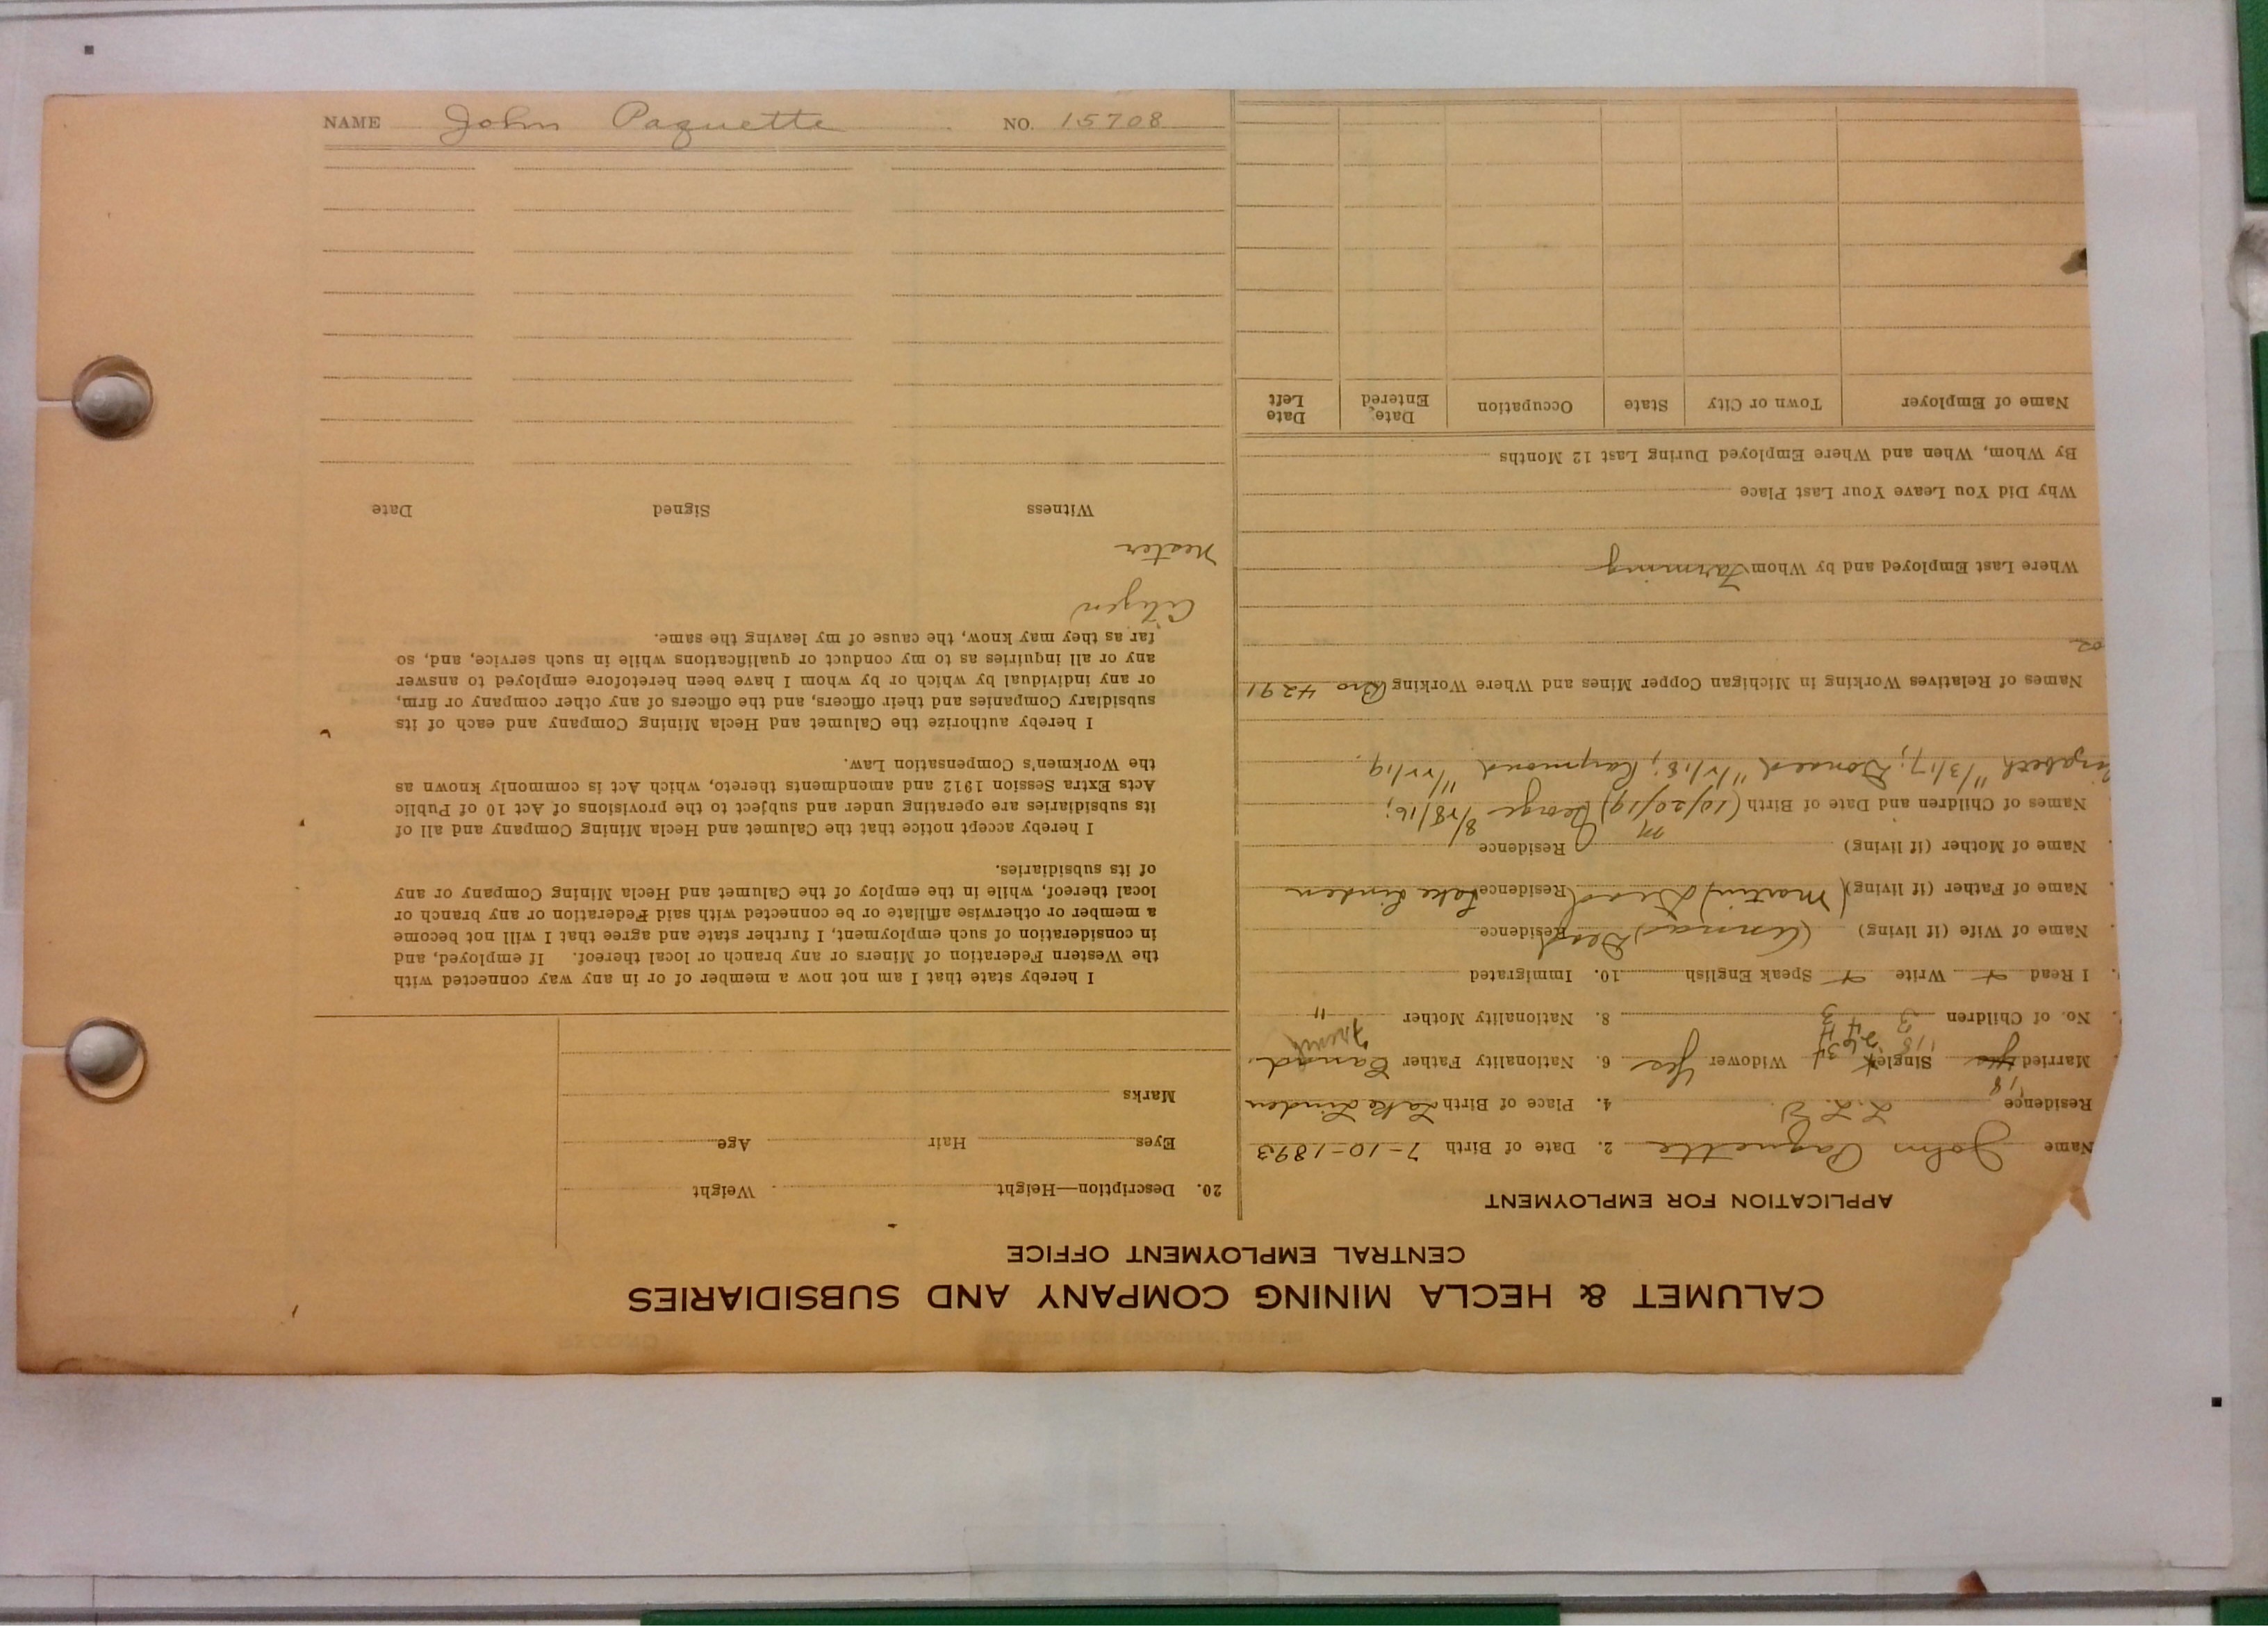 NAME John Paquette NO. 15708
CALUMET & HECLA MINING COMPANY AND SUBSIDIARIES
CENTRAL EMPLOYMENT OFFICE
APPLICATION FOR EMPLOYMENT
Name John Paquette 2. Date of Birth 7-10-1893
Residence L. L. 4. Place of Birth Lake Linden
Married Yes Single Widower Yes 6. Nationality Father Canad. French
No. of Children 3 3 8. Nationality Mother "
I Read + Write + Speak English 10. Immigrated
Name of Wife (if living) (Anna) Dead Residence
Name of Father (if living) (Martin) Dead Residence Lake Linden
Name of Mother (if living) Residence
Names of Children and Date of Birth (10/20/19) George 8/28/16;
11/3/17; Donald 11/1/18; Raymond 11/11/19.
Names of Relatives Working in Michigan Copper Mines and Where Working Bro 4291
Where Last Employed and by Whom Farming
Why Did You Leave Your Last Place
By Whom, When and Where Employed During Last 12 Months
Name of Employer Town or City State Occupation Date Entered Date Left
20. Description—Height Weight
Eyes Hair Age
Marks
I hereby state that I am not now a member of or in any way connected with
the Western Federation of Miners or any branch or local thereof. If employed, and
in consideration of such employment, I further state and agree that I will not become
a member or otherwise affiliate or be connected with said Federation or any branch or
local thereof, while in the employ of the Calumet and Hecla Mining Company or any
of its subsidiaries.
I hereby accept notice that the Calumet and Hecla Mining Company and all of
its subsidiaries are operating under and subject to the provisions of Act 10 of Public
Acts Extra Session 1912 and amendments thereto, which Act is commonly known as
the Workmen's Compensation Law.
I hereby authorize the Calumet and Hecla Mining Company and each of its
subsidiary Companies and their officers, and the officers of any other company or firm,
or any individual by which or by whom I have been heretofore employed to answer
any or all inquiries as to my conduct or qualifications while in such service, and, so
far as they may know, the cause of my leaving the same.
Citizen
Nester
Witness Signed Date